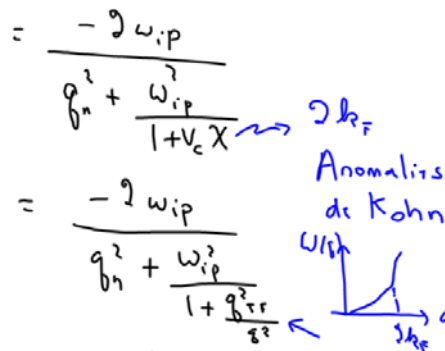 = -2ω_ip / (q_n² + ω_ip² / (1+V_c χ))
2k_F
Anomalies
de Kohn
= -2ω_ip / (q_n² + ω_ip² / (1 + q²_TF / q²))
ω(q)
q
2k_F